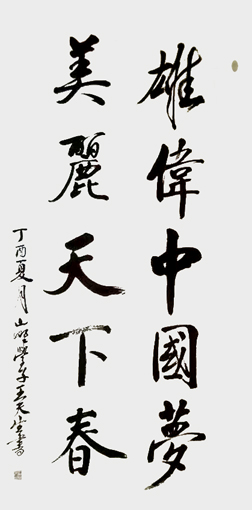 雄偉中國夢
美麗天下春
丁酉夏月山野學子王天宝書